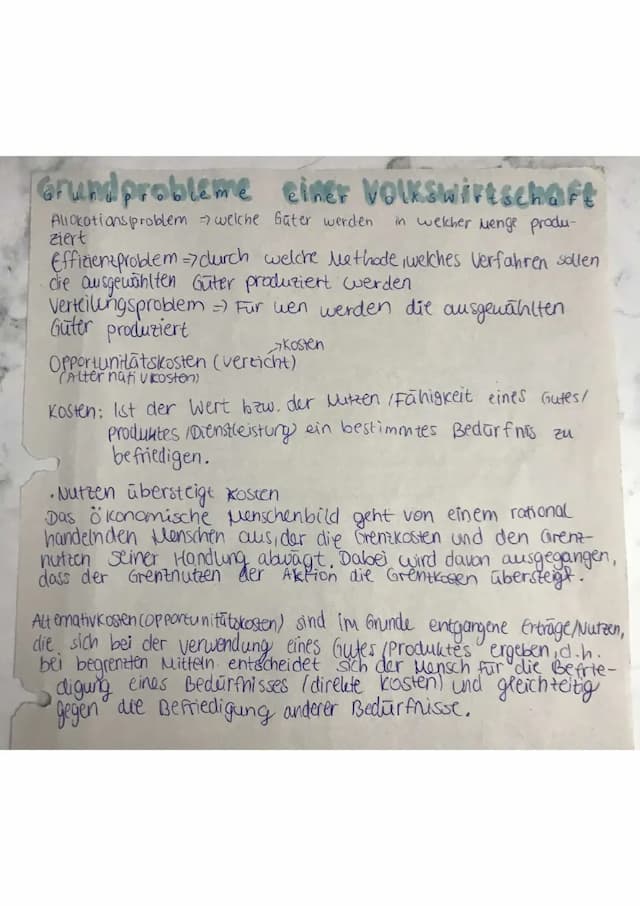 Grundprobleme einer Volkswirtschaft
Allokationsproblem => welche Güter werden in welcher Menge produ-
ziert
Effizienzproblem => durch welche Methode, welches Verfahren sollen
die ausgewählten Güter produziert werden
Verteilungsproblem => Für wen werden die ausgewählten
Güter produziert
→Kosten
Opportunitätskosten (verzicht)
(Alternativkosten)
Kosten: Ist der Wert bzw. der Nutzen /Fähigkeit eines Gutes/
produktes /Dienstleistung ein bestimmtes Bedürfnis zu
befriedigen.
• Nutzen übersteigt Kosten
Das Ökonomische Menschenbild geht von einem rational
handelnden Menschen aus, der die Grenzkosten und den Grenz-
nutzen seiner Handlung abwägt. Dabei wird davon ausgegangen,
dass der Grenznutzen der Aktion die Grenzkosen übersteigt.
Alternativkosten (opportunitätskosten) sind im Grunde entgangene Erträge/Nutzen,
die sich bei der verwendung eines Gutes/Produktes ergeben, d.h.
bei begrenten Mitteln entscheidet sich der Mensch für die Befrie-
digung eines Bedürfnisses (direkte Kosten) und gleichzeitig
gegen die Befriedigung anderer Bedürfnisse.